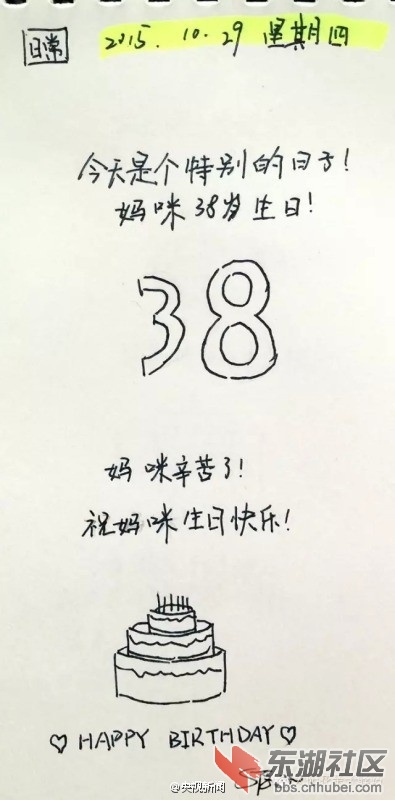 日常
2015. 10. 29 星期四
今天是个特别的日子!
妈咪38岁生日!
38
妈咪辛苦了!
祝妈咪生日快乐!
♡ HAPPY BIRTHDAY ♡
@央视新闻
东湖社区
bbs.cnhubei.com